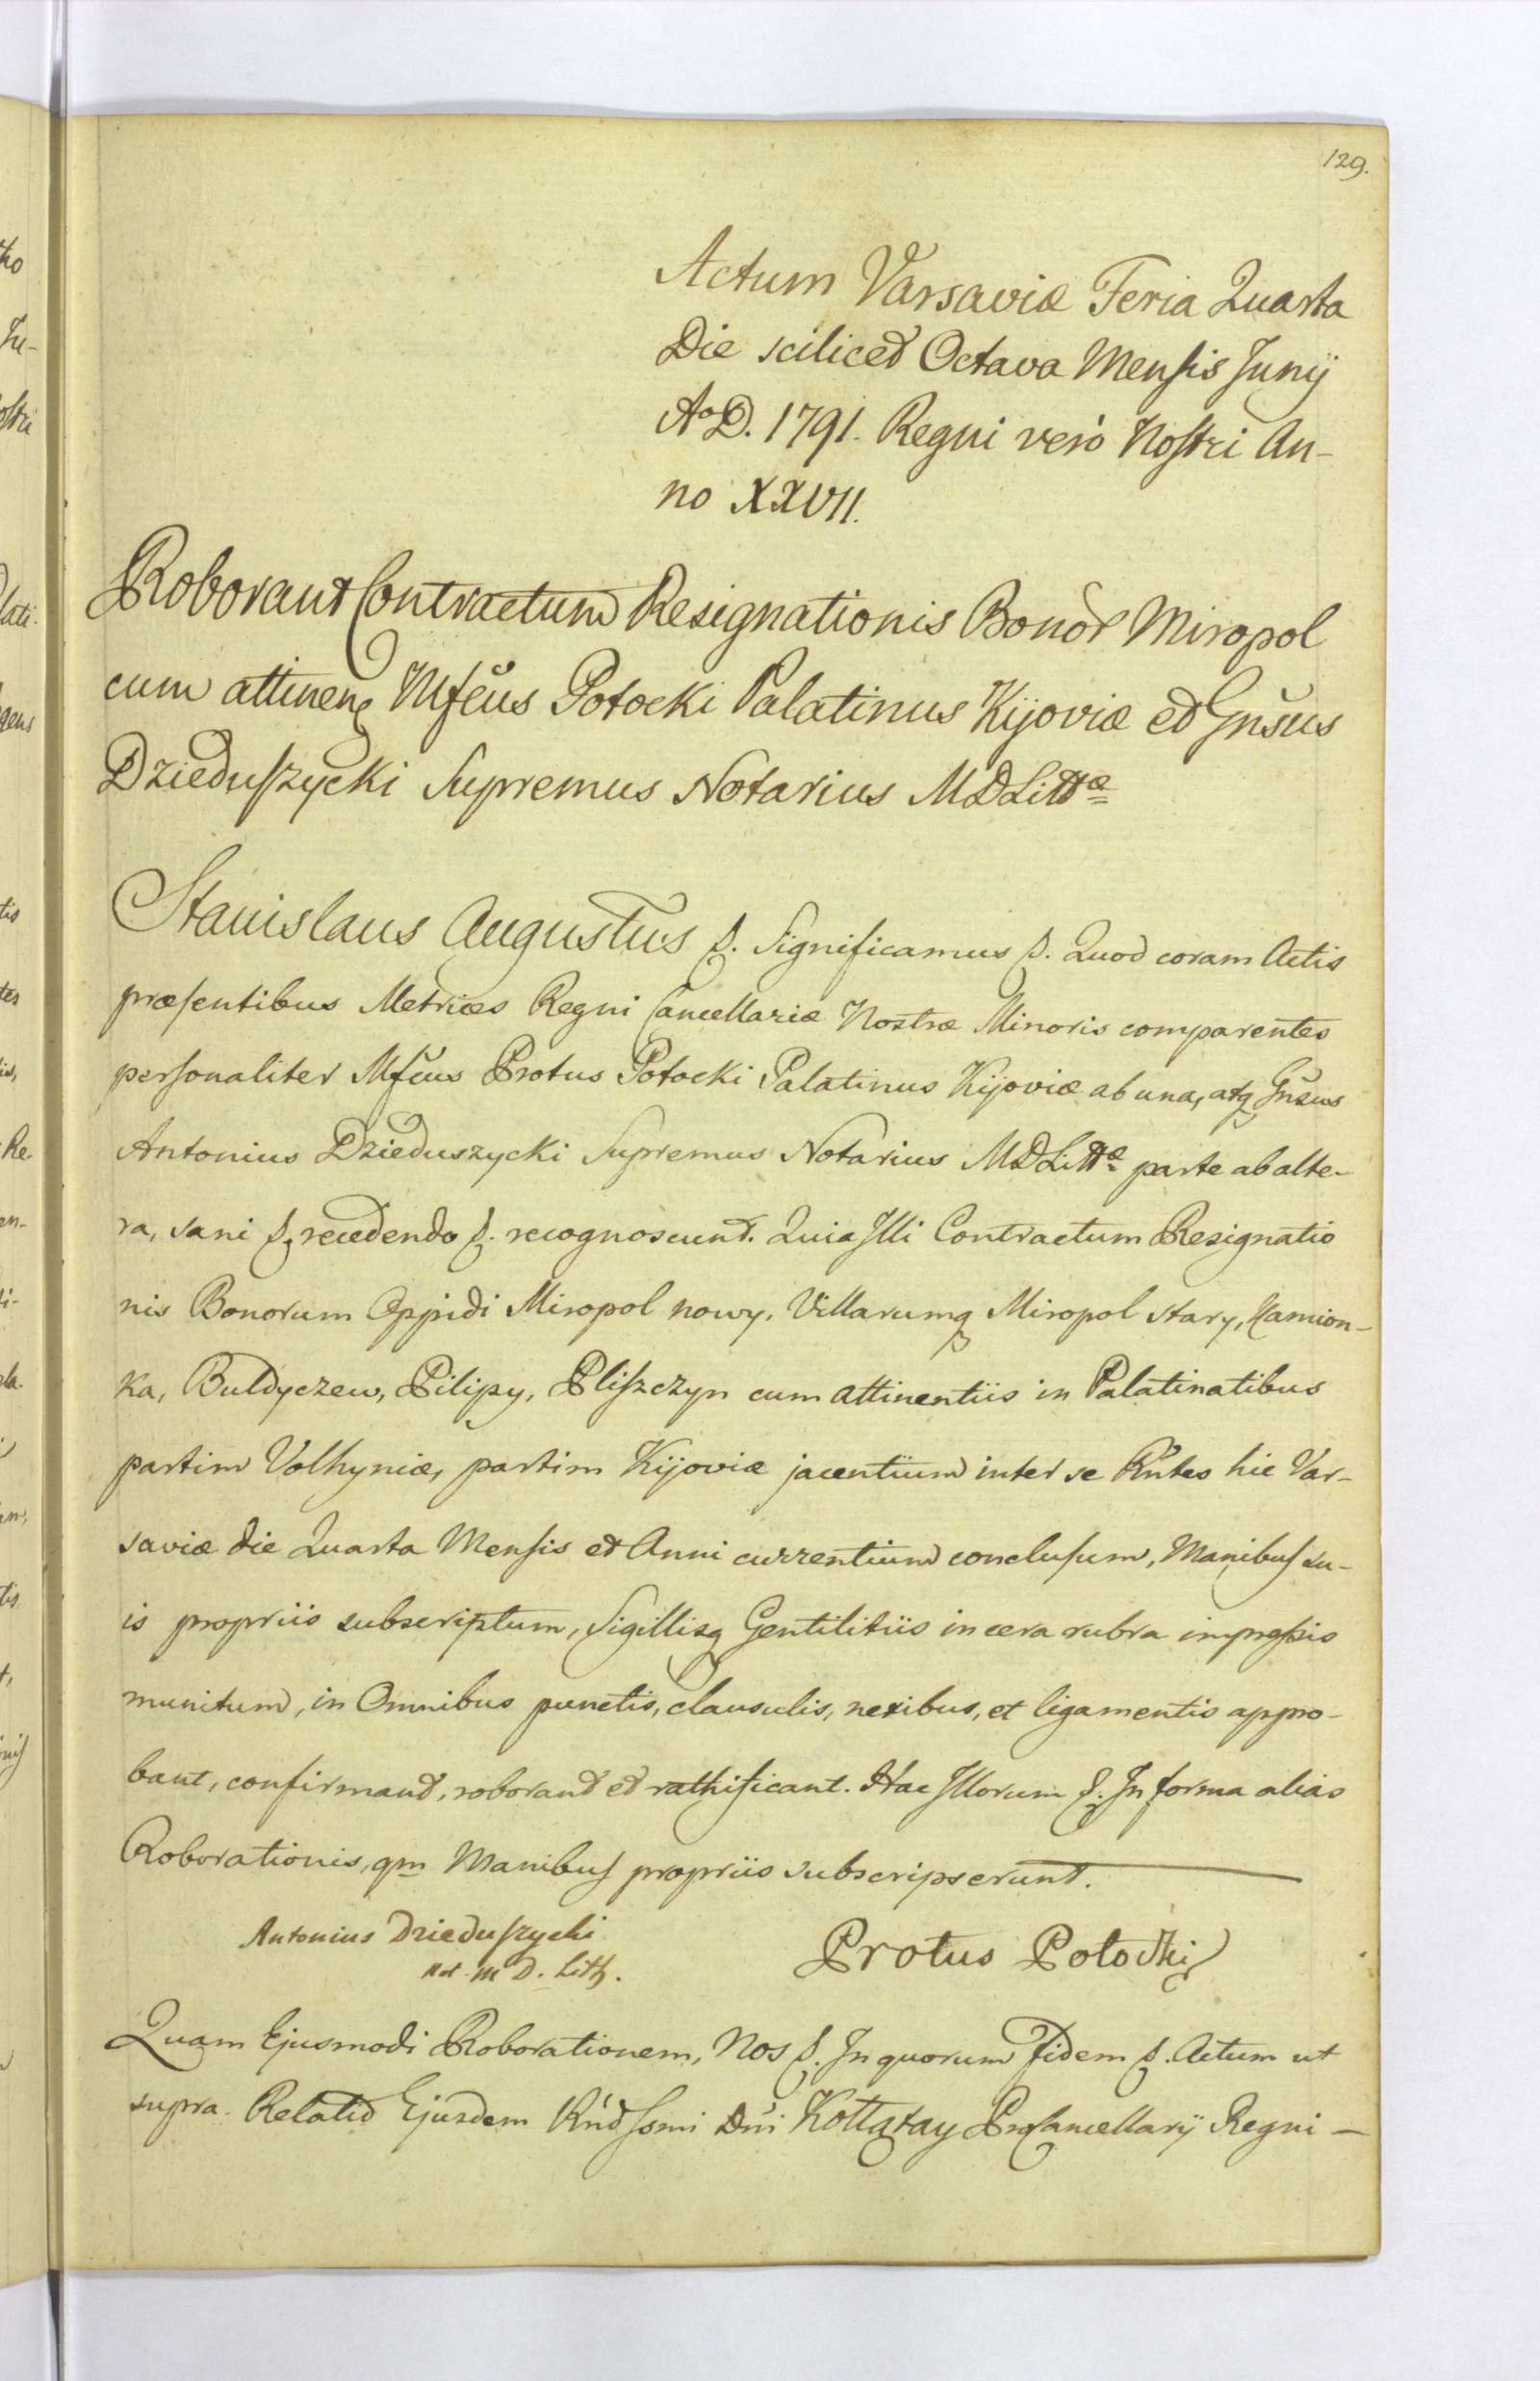 129.
Actum Varsaviæ Feria Quarta
Die scilicet Octava Mensis Junij
Aº D. 1791. Regni verò Nostri An-
no XXVII.
Roborant Contractum Resignationis Bonor Miropol
cum attinen Mfcus Potocki Palatinus Kijoviæ et Gnsus
Dzieduszycki Supremus Notarius MDLittæ
Stanislaus Augustus &. Significamus &. Quod coram Actis
præsentibus Metrices Regni Cancellariæ Nostræ Minoris comparentes
personaliter Mfcus Protus Potocki Palatinus Kijoviæ ab una, atq Gnsus
Antonius Dzieduszycki Supremus Notarius MDLittæ parte ab alte-
ra, sani &, recedendo &. recognoscunt. Quia Illi Contractum Resignatio
nis Bonorum Oppidi Miropol nowy, Villarumq Miropol stary, Kamion-
ka, Buldyczew, Pilipy, Pliszczyn cum attinentiis in Palatinatibus
partim Volhyniæ, partim Kijoviæ jacentium inter se Rntes hic Var-
saviæ die Quarta Mensis et Anni currentium conclusum, Manibus su-
is propriis subscriptum, Sigillisq Gentilitiis in cera rubra impressis
munitum, in Omnibus punctis, clausulis, nexibus, et ligamentis appro-
bant, confirmant, roborant et rathificant. Hac Illorum &. In forma alias
Roborationis, qm Manibus propriis subscripserunt.
Antonius Dzieduszycki
Not. M D. Lith.
Protus Potocki
Quam Ejusmodi Roborationem, Nos &. In quorum Fidem &. Actum ut
supra. Relatio Ejusdem Rndssmi Dni Kołłątay ProCancellarij Regni -